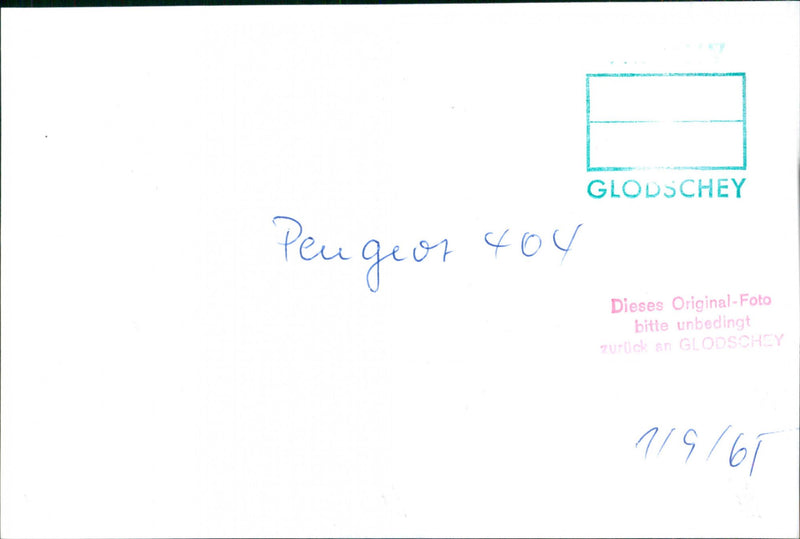 GLODSCHEY
Peugeot 404
Dieses Original-Foto
bitte unbedingt
zurück an GLODSCHEY